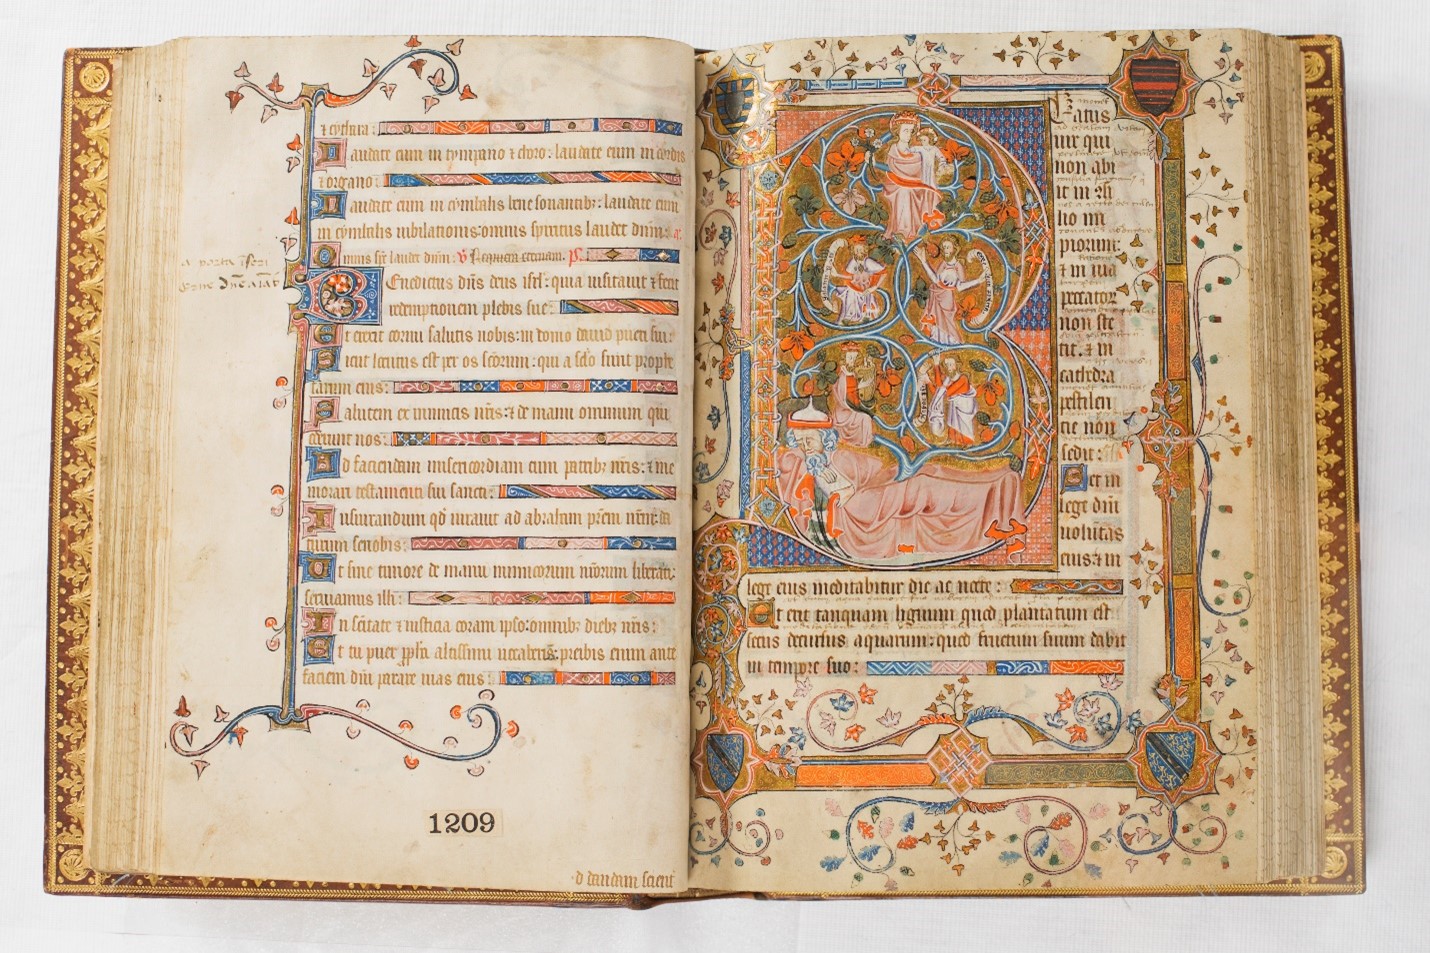 ⁊ cythara:
Laudate eum in tympano ⁊ choro: laudate eum in cordis
⁊ organo:
Laudate eum in cymbalis bene sonantib: laudate eum
in cymbalis iubilationis: omnis spiritus laudet dnm:
Omnis spc laudet dnm: V Requiem eternam. P.
a porta inferi
Erue dne aias
Benedictus dns deus isrl: quia uisitauit ⁊ fecit
redemptionem plebis sue:
Et erexit cornu salutis nobis: in domo dauid pueri sui:
Sicut locutus est per os scorum: qui a sclo sunt prophe
tarum eius:
Salutem ex inimicis nris: ⁊ de manu omnium qui
oderunt nos:
Ad faciendam misericordiam cum patrib nris: ⁊ me
morari testamenti sui sancti:
Iusiurandum qd iurauit ad abraham prem nrm: da
turum se nobis:
Ut sine timore de manu inimicorum nrorum liberati:
seruiamus illi:
In scitate ⁊ iusticia coram ipso: omnib dieb nris:
Et tu puer ppha altissimi uocaberis: preibis enim ante
faciem dni parare uias eius:
1209
d dandam scient
B
eatus
uir qui
non abi
it in csi
lio im
piorum:
⁊ in uia
peccator
non ste
tit: ⁊ in
cathedra
pestilen
cie non
sedit:
Set in
lege dni
uoluntas
eius: ⁊ in
lege eius meditabitur die ac nocte:
Et erit tanquam lignum quod plantatum est
secus decursus aquarum: quod fructum suum dabit
in tempre suo: